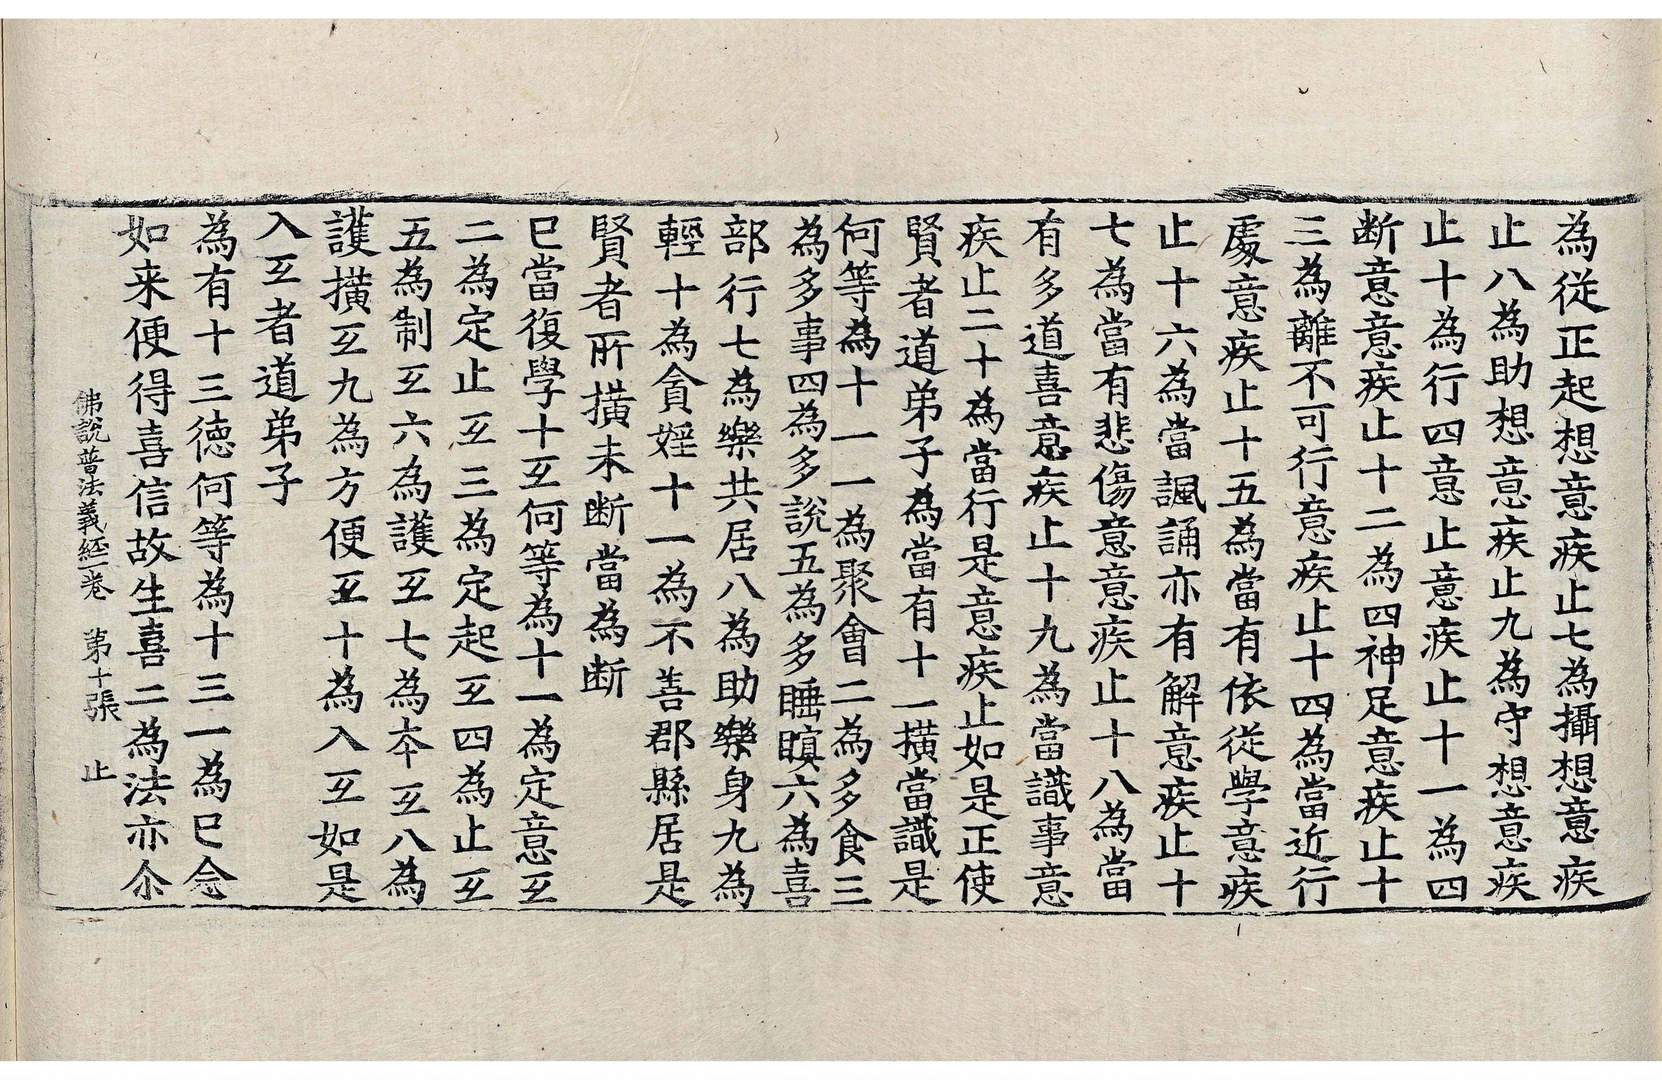 為從正起想意疾止七為攝想意疾
止八為助想意疾止九為守想意疾
止十為行四意止意疾止十一為四
断意意疾止十二為四神足意疾止十
三為離不可行意疾止十四為當近行
處意疾止十五為當有依從學意疾
止十六為當諷誦亦有解意疾止十
七為當有悲傷意意疾止十八為當
有多道喜意疾止十九為當識事意
疾止二十為當行是意疾止如是正使
賢者道弟子為當有十一撗當識是
何等為十一一為聚會二為多食三
為多事四為多說五為多睡瞋六為喜
部行七為樂共居八為助樂身九為
輕十為貪婬十一為不善郡縣居是
賢者所撗未断當為断
巳當復學十㸦何等為十一為定意㸦
二為定止㸦三為定起㸦四為止㸦
五為制㸦六為護㸦七為夲㸦八為
護撗㸦九為方便㸦十為入㸦如是
入㸦者道弟子
為有十三徳何等為十三一為巳念
如来便得喜信故生喜二為法亦尒
佛說普法義經一卷　第十張　止